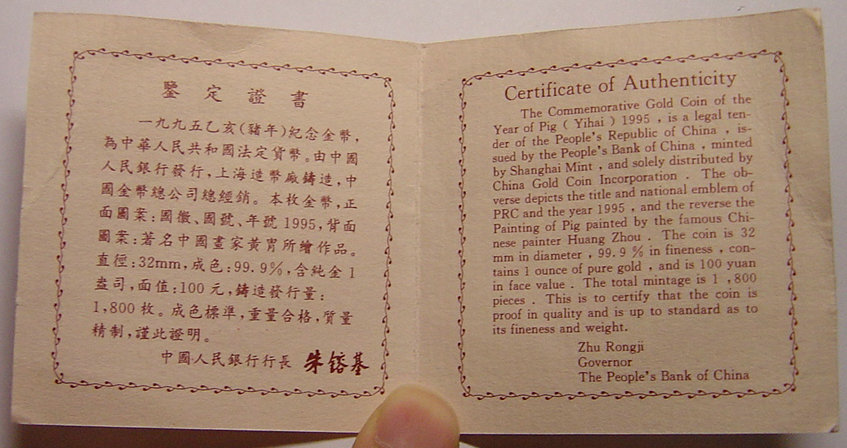 鑒定證書
一九九五乙亥(豬年)紀念金幣,
為中華人民共和國法定貨幣。由中國
人民銀行發行,上海造幣廠鑄造,中
國金幣總公司總經銷。本枚金幣,正
面圖案:國徽、國號、年號1995,背面
圖案:著名中國畫家黃冑所繪作品。
直徑:32mm,成色:99.9%,含純金1
盎司,面值:100元,鑄造發行量:
1,800枚。成色標準,重量合格,質量
精制,謹此證明。
中國人民銀行行長 朱鎔基
Certificate of Authenticity
The Commemorative Gold Coin of the
Year of Pig ( Yihai ) 1995 , is a legal ten-
der of the People's Republic of China , is-
sued by the People's Bank of China , minted
by Shanghai Mint , and solely distributed by
China Gold Coin Incorporation . The ob-
verse depicts the title and national emblem of
PRC and the year 1995 , and the reverse the
Painting of Pig painted by the famous Chi-
nese painter Huang Zhou . The coin is 32
mm in diameter , 99. 9 % in fineness , con-
tains 1 ounce of pure gold , and is 100 yuan
in face value . The total mintage is 1 ,800
pieces . This is to certify that the coin is
proof in quality and is up to standard as to
its fineness and weight.
Zhu Rongji
Governor
The People's Bank of China